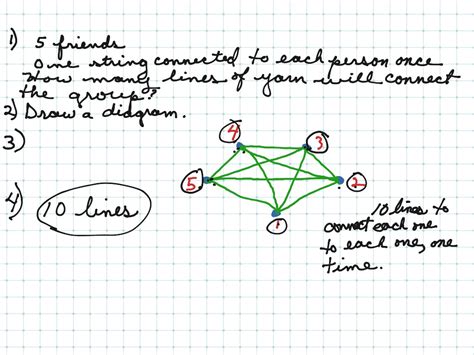 1) 5 friends
One string connected to each person once
How many lines of yarn will connect
the group?
2) Draw a diagram.
3)
4 3
5 2
1
4) 10 lines
10 lines to
connect each one
to each one, one
time.